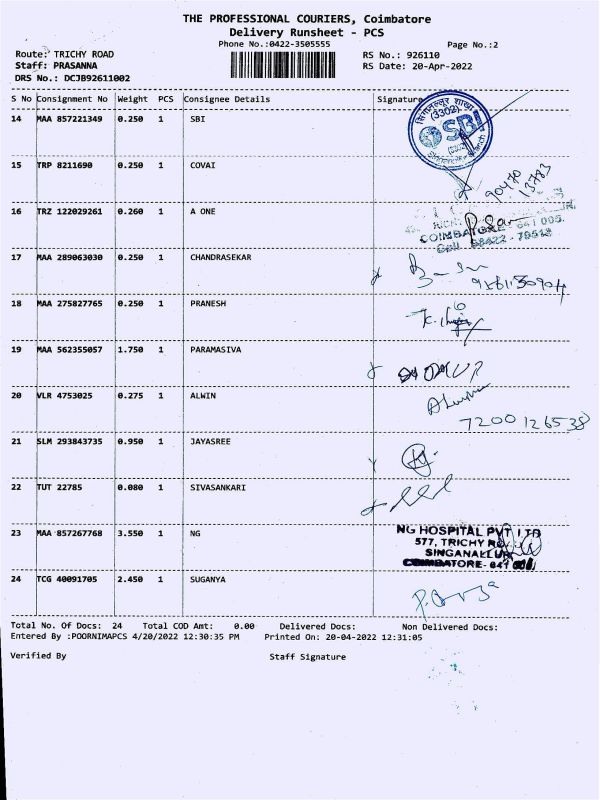 THE PROFESSIONAL COURIERS, Coimbatore
Delivery Runsheet - PCS
Phone No.:0422-3505555
Page No.:2
Route: TRICHY ROAD
RS No.: 926110
Staff: PRASANNA
RS Date: 20-Apr-2022
DRS No.: DCJB92611002
S No Consignment No Weight PCS Consignee Details Signature
14 MAA 857221349 0.250 1 SBI
(3302)
SBI
15 TRP 8211690 0.250 1 COVAI
90470
13783
16 TRZ 122029261 0.260 1 A ONE
COIMBATORE - 641 005.
Cell
17 MAA 289063030 0.250 1 CHANDRASEKAR
18 MAA 275827765 0.250 1 PRANESH
19 MAA 562355057 1.750 1 PARAMASIVA
20 VLR 4753025 0.275 1 ALWIN
7200126538
21 SLM 293843735 0.950 1 JAYASREE
22 TUT 22785 0.080 1 SIVASANKARI
23 MAA 857267768 3.550 1 NG
NG HOSPITAL PVT LTD
577, TRICHY
SINGANALLUR
COIMBATORE- 641
24 TCG 40091705 2.450 1 SUGANYA
Total No. Of Docs: 24 Total COD Amt: 0.00 Delivered Docs: Non Delivered Docs:
Entered By :POORNIMAPCS 4/20/2022 12:30:35 PM Printed On: 20-04-2022 12:31:05
Verified By Staff Signature